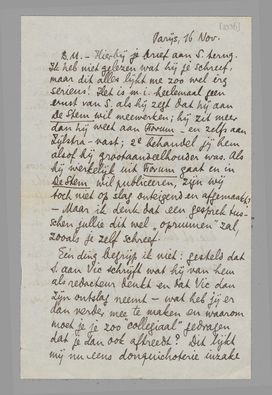 Parijs, 16 Nov.
B.M. – Hierbij je brief aan S. terug.
Ik heb niet gelezen wat hij je schreef,
maar dit alles lijkt me zoo wel erg
serieus! Het is m.i. heelemaal geen
ernst van S. als hij zegt dat hij aan
De Stem wil meewerken; hij zit meer
dan hij weet aan Forum – en zelfs aan
Zijlstra – vast; 2e behandel jij hem
alsof hij grootaandeelhouder was. Als
hij werkelijk uit Forum gaat en in
De Stem wil publiceeren, zijn wij
toch niet op slag onteigend en afgemaakt?
– Maar ik denk dat een gesprek tus-
schen jullie dit wel "opruimen" zal,
zooals je zelf schreef.
Eén ding begrijp ik niet: gesteld dat
S. aan Vic schrijft wat hij van hem
als redacteur denkt en dat Vic dan
zijn ontslag neemt – wat heb jij er
dan verder mee te maken en waarom
moet je je zoo "collegiaal" gedragen
dat je dan ook aftreedt? Dit lijkt
mij nu eens donquichoterie inzake